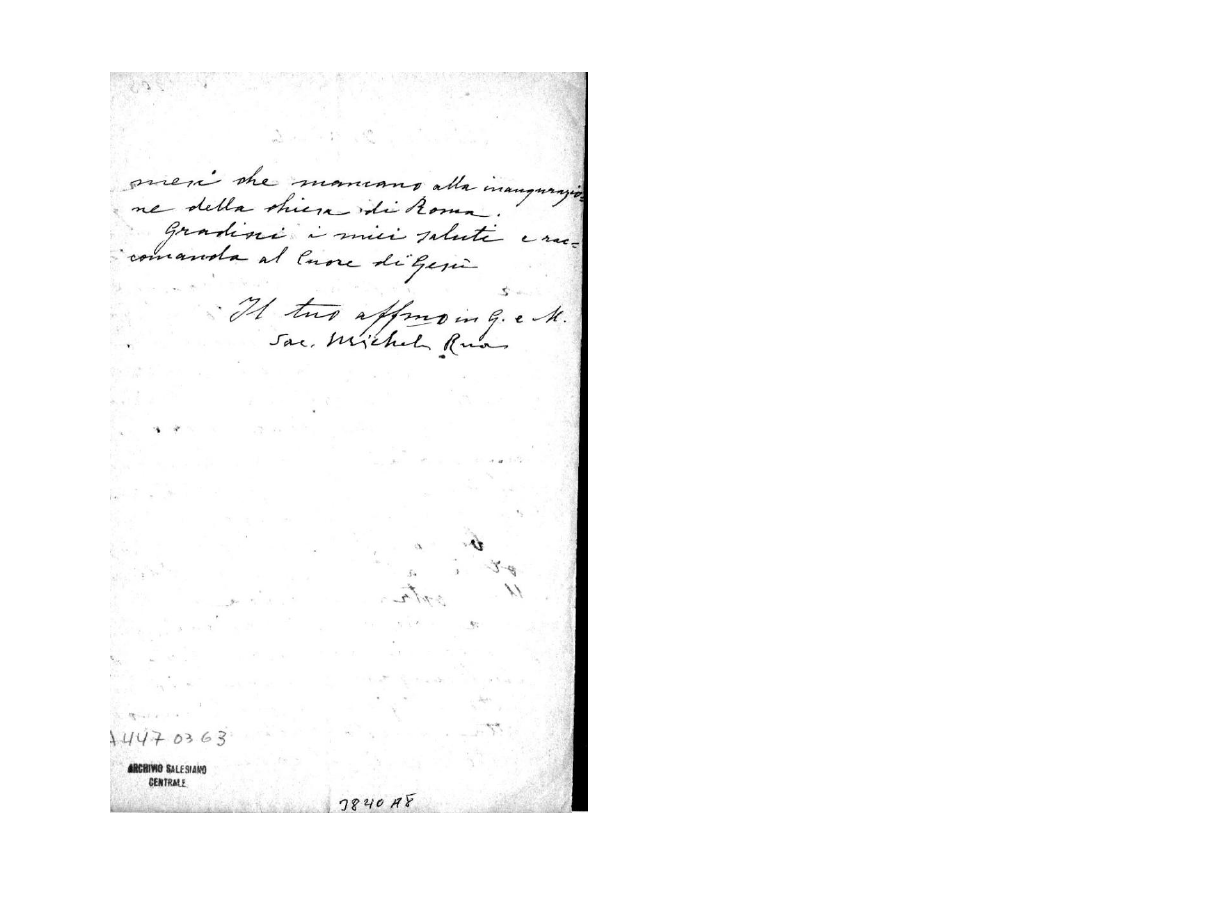 mesi che mancano alla inaugurazio=
ne della chiesa di Roma.
Gradisci i miei saluti e rac=
comanda al Cuore di Gesù
Il tuo affmo in G. e M.
Sac. Michele Rua
A447 03 63
ARCHIVIO SALESIANO
CENTRALE
3840 A8